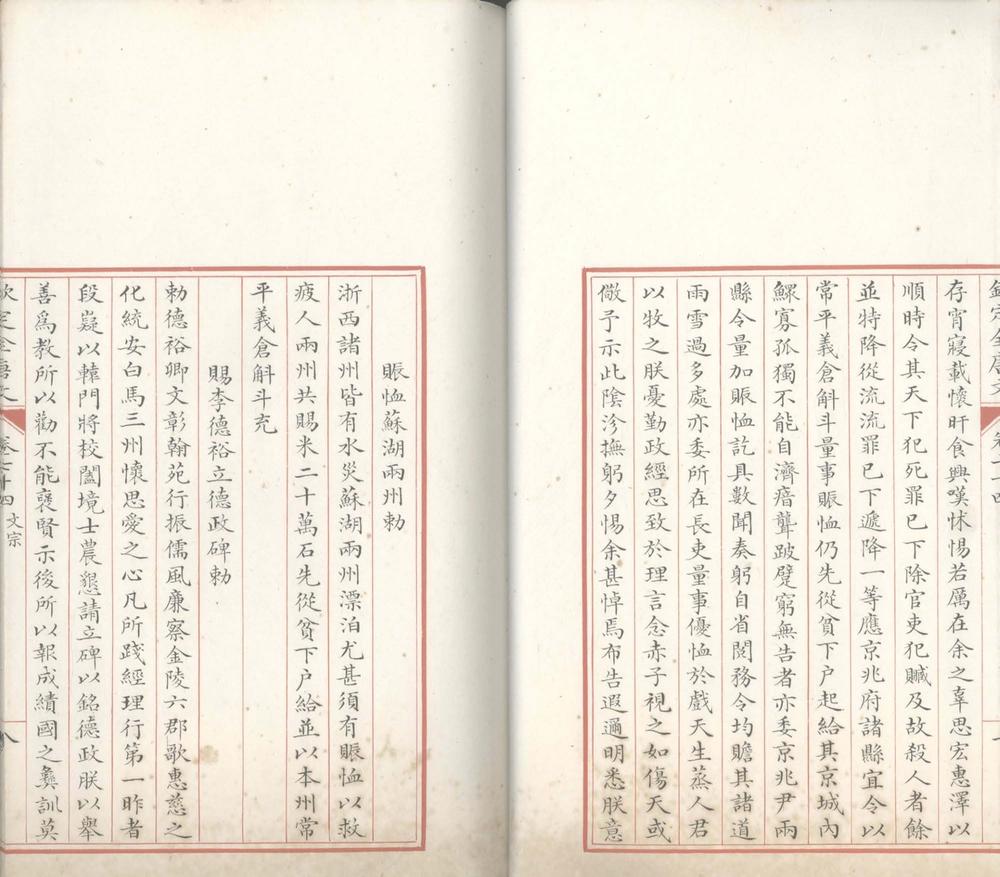 存宵寢載懷旰食興嘆怵惕若厲在余之辜思宏惠澤以
順時令其天下犯死罪已下除官吏犯贓及故殺人者餘
並特降從流流罪已下遞降一等應京兆府諸縣宜令以
常平義倉斛斗量事賑恤仍先從貧下戶起給其京城內
鰥寡孤獨不能自濟瘖聾跛躄窮無告者亦委京兆尹兩
縣令量加賑恤訖具數聞奏躬自省閱務令均贍其諸道
雨雪過多處亦委所在長吏量事優恤於戲天生蒸人君
以牧之朕憂勤政經思致於理言念赤子視之如傷天或
儆予示此陰沴撫躬夕惕余甚悼焉布告遐邇明悉朕意
賑恤蘇湖兩州敕
浙西諸州皆有水災蘇湖兩州漂泊尤甚須有賑恤以救
疲人兩州共賜米二十萬石先從貧下戶給並以本州常
平義倉斛斗充
賜李德裕立德政碑勅
勅德裕卿文彰翰苑行振儒風廉察金陵六郡歌惠慈之
化統安白馬三州懷思愛之心凡所踐經理行第一昨者
段嶷以轅門將校闔境士農懇請立碑以銘德政朕以舉
善爲教所以勸不能襃賢示後所以報成績國之彝訓莫
文宗
八